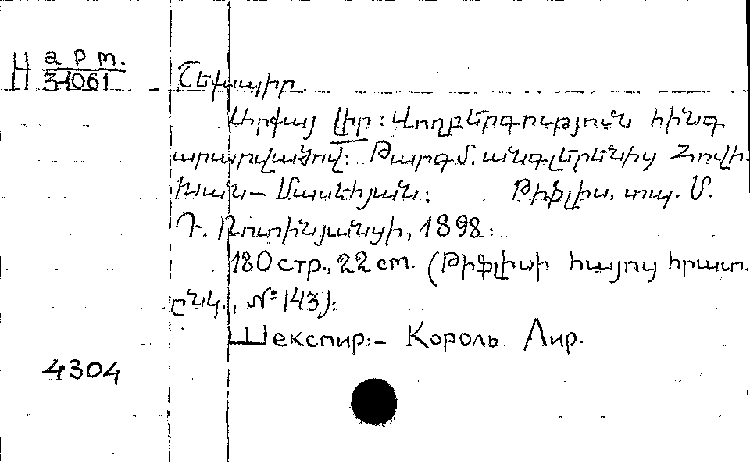 а р т.
Н 34061
Շեքսպիր
Արքայ Լիր: Վողբերգութայուն հինգ
արարվածով: Թարգմ. անգլերենից Հովհ.
Խան-Մասեհյան: Թիֆլիս, տպ. Մ.
Դ. Ռոտինյանցի, 1898:
180 стр., 22 cm. (Թիֆլիսի հայոց հրատ.
ընկ., №143):
Шекспир:- Король Лир.
4304